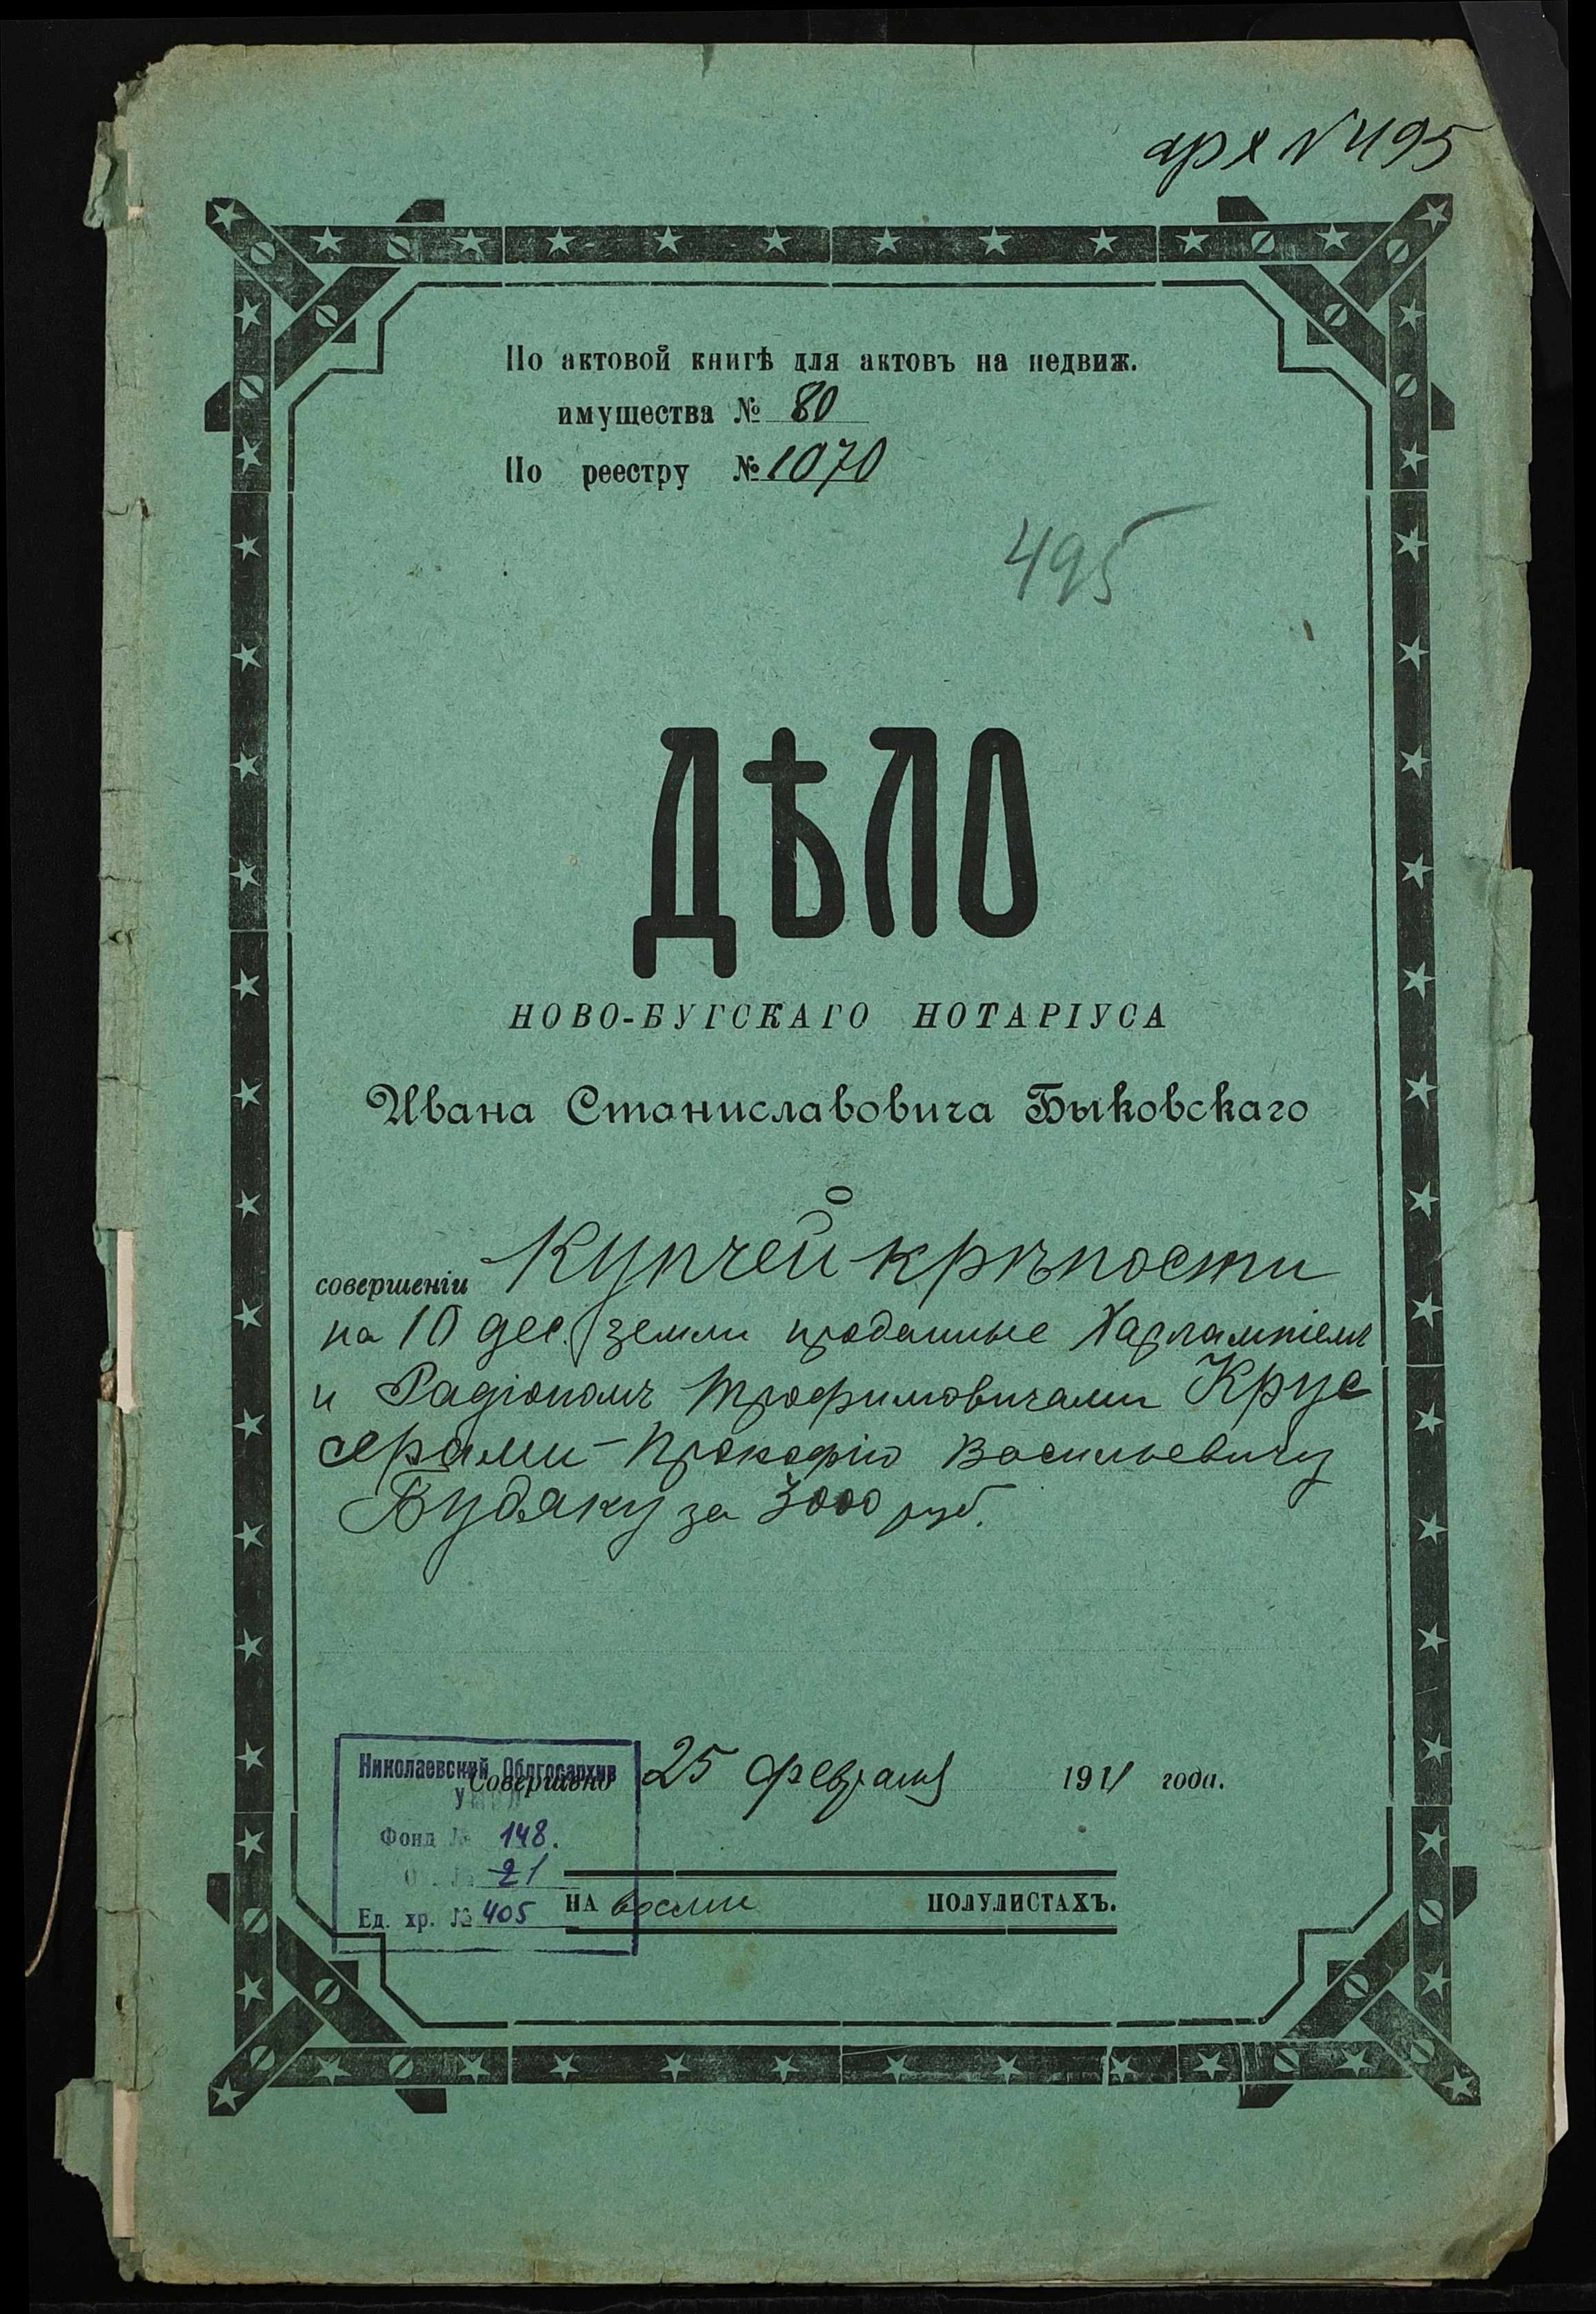 арх №495
По актовой книгѣ для актовъ на недвиж.
имущества № 80
По реестру № 1070
495
ДѢЛО
НОВО-БУГСКАГО НОТАРІУСА
Ивана Станиславовича Быковскаго
О
совершеніи Купчей крѣпости
на 10 дес. земли проданные Харлампіемъ
и Радіономъ Трофимовичами Крус
серами - Прокофію Васильевичу
Будяку за 3000 руб.
Николаевский Облгосархив
Совершено 25 февраля 1911 года.
Фонд № 148.
Оп. № 21
Ед. хр. № 405
НА восми ПОЛУЛИСТАХЪ.